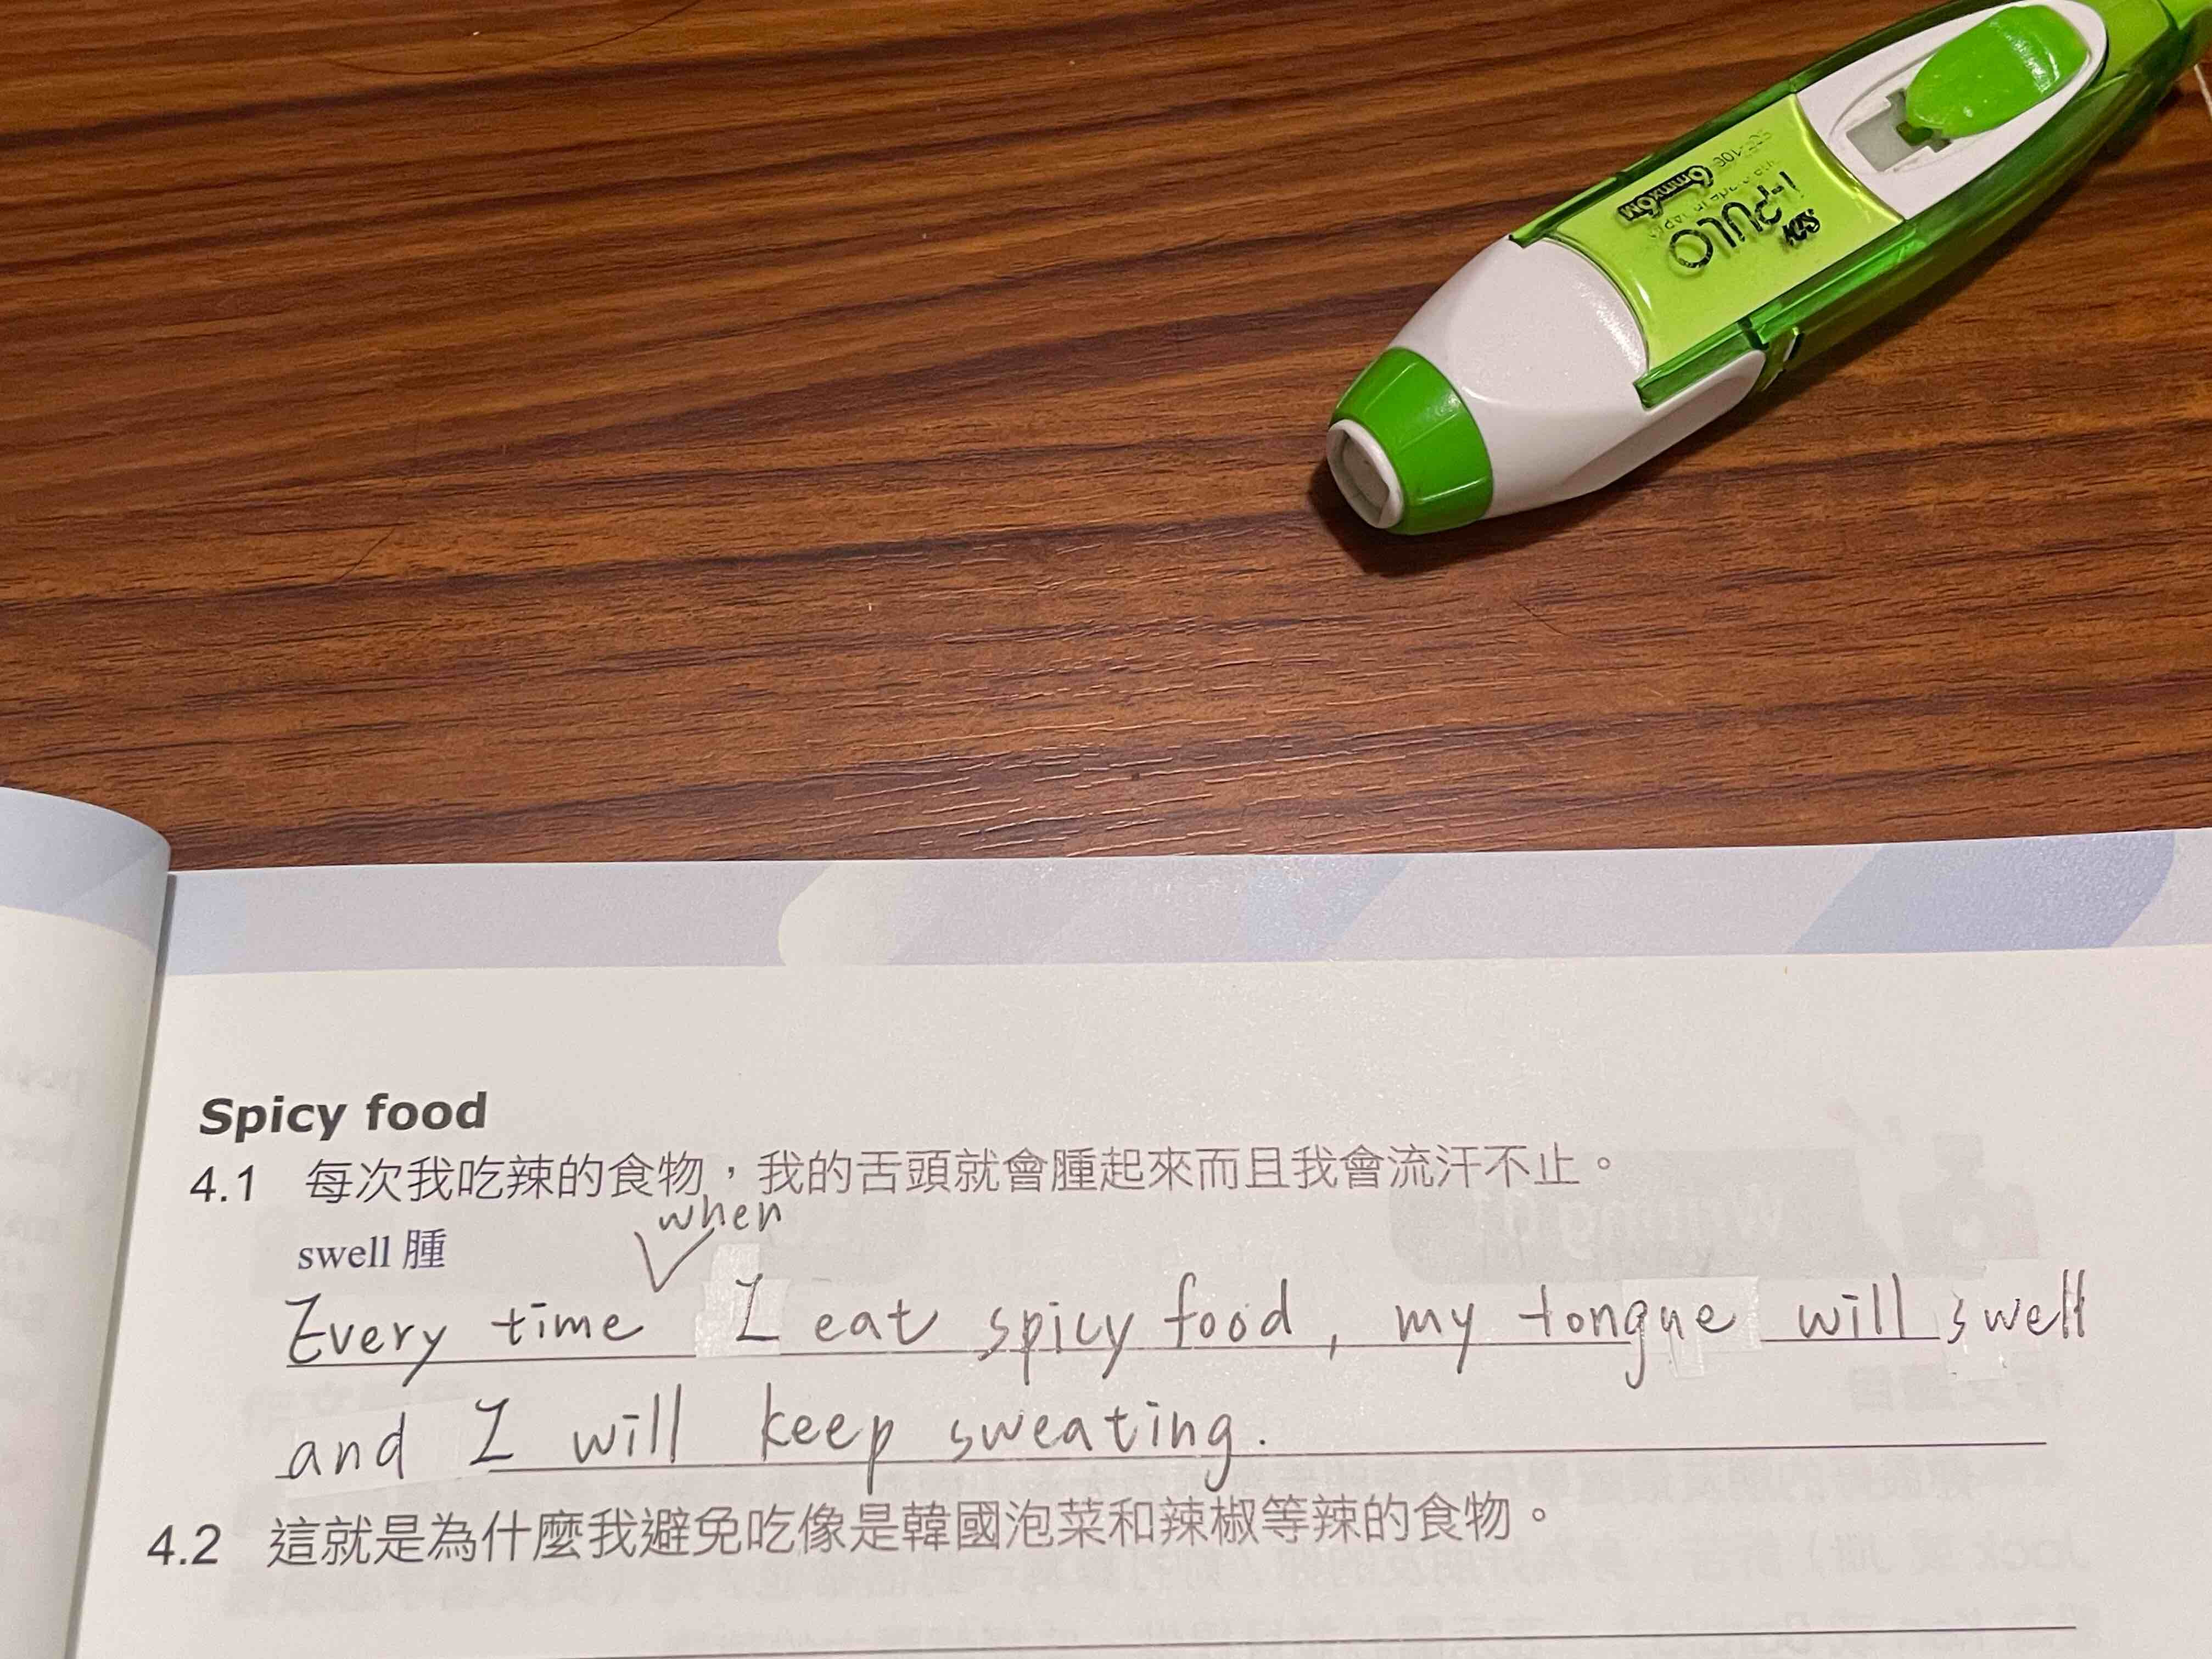 i-PULO
Spicy food
4.1 每次我吃辣的食物，我的舌頭就會腫起來而且我會流汗不止。
when
swell 腫
Every time I eat spicy food, my tongue will swell
and I will keep sweating.
4.2 這就是為什麼我避免吃像是韓國泡菜和辣椒等辣的食物。